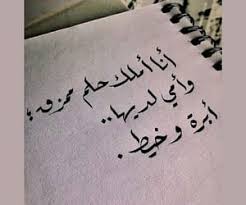 أنا أملك حلم ممزق ؛
وأمي لديها..
أبرة وخيط.